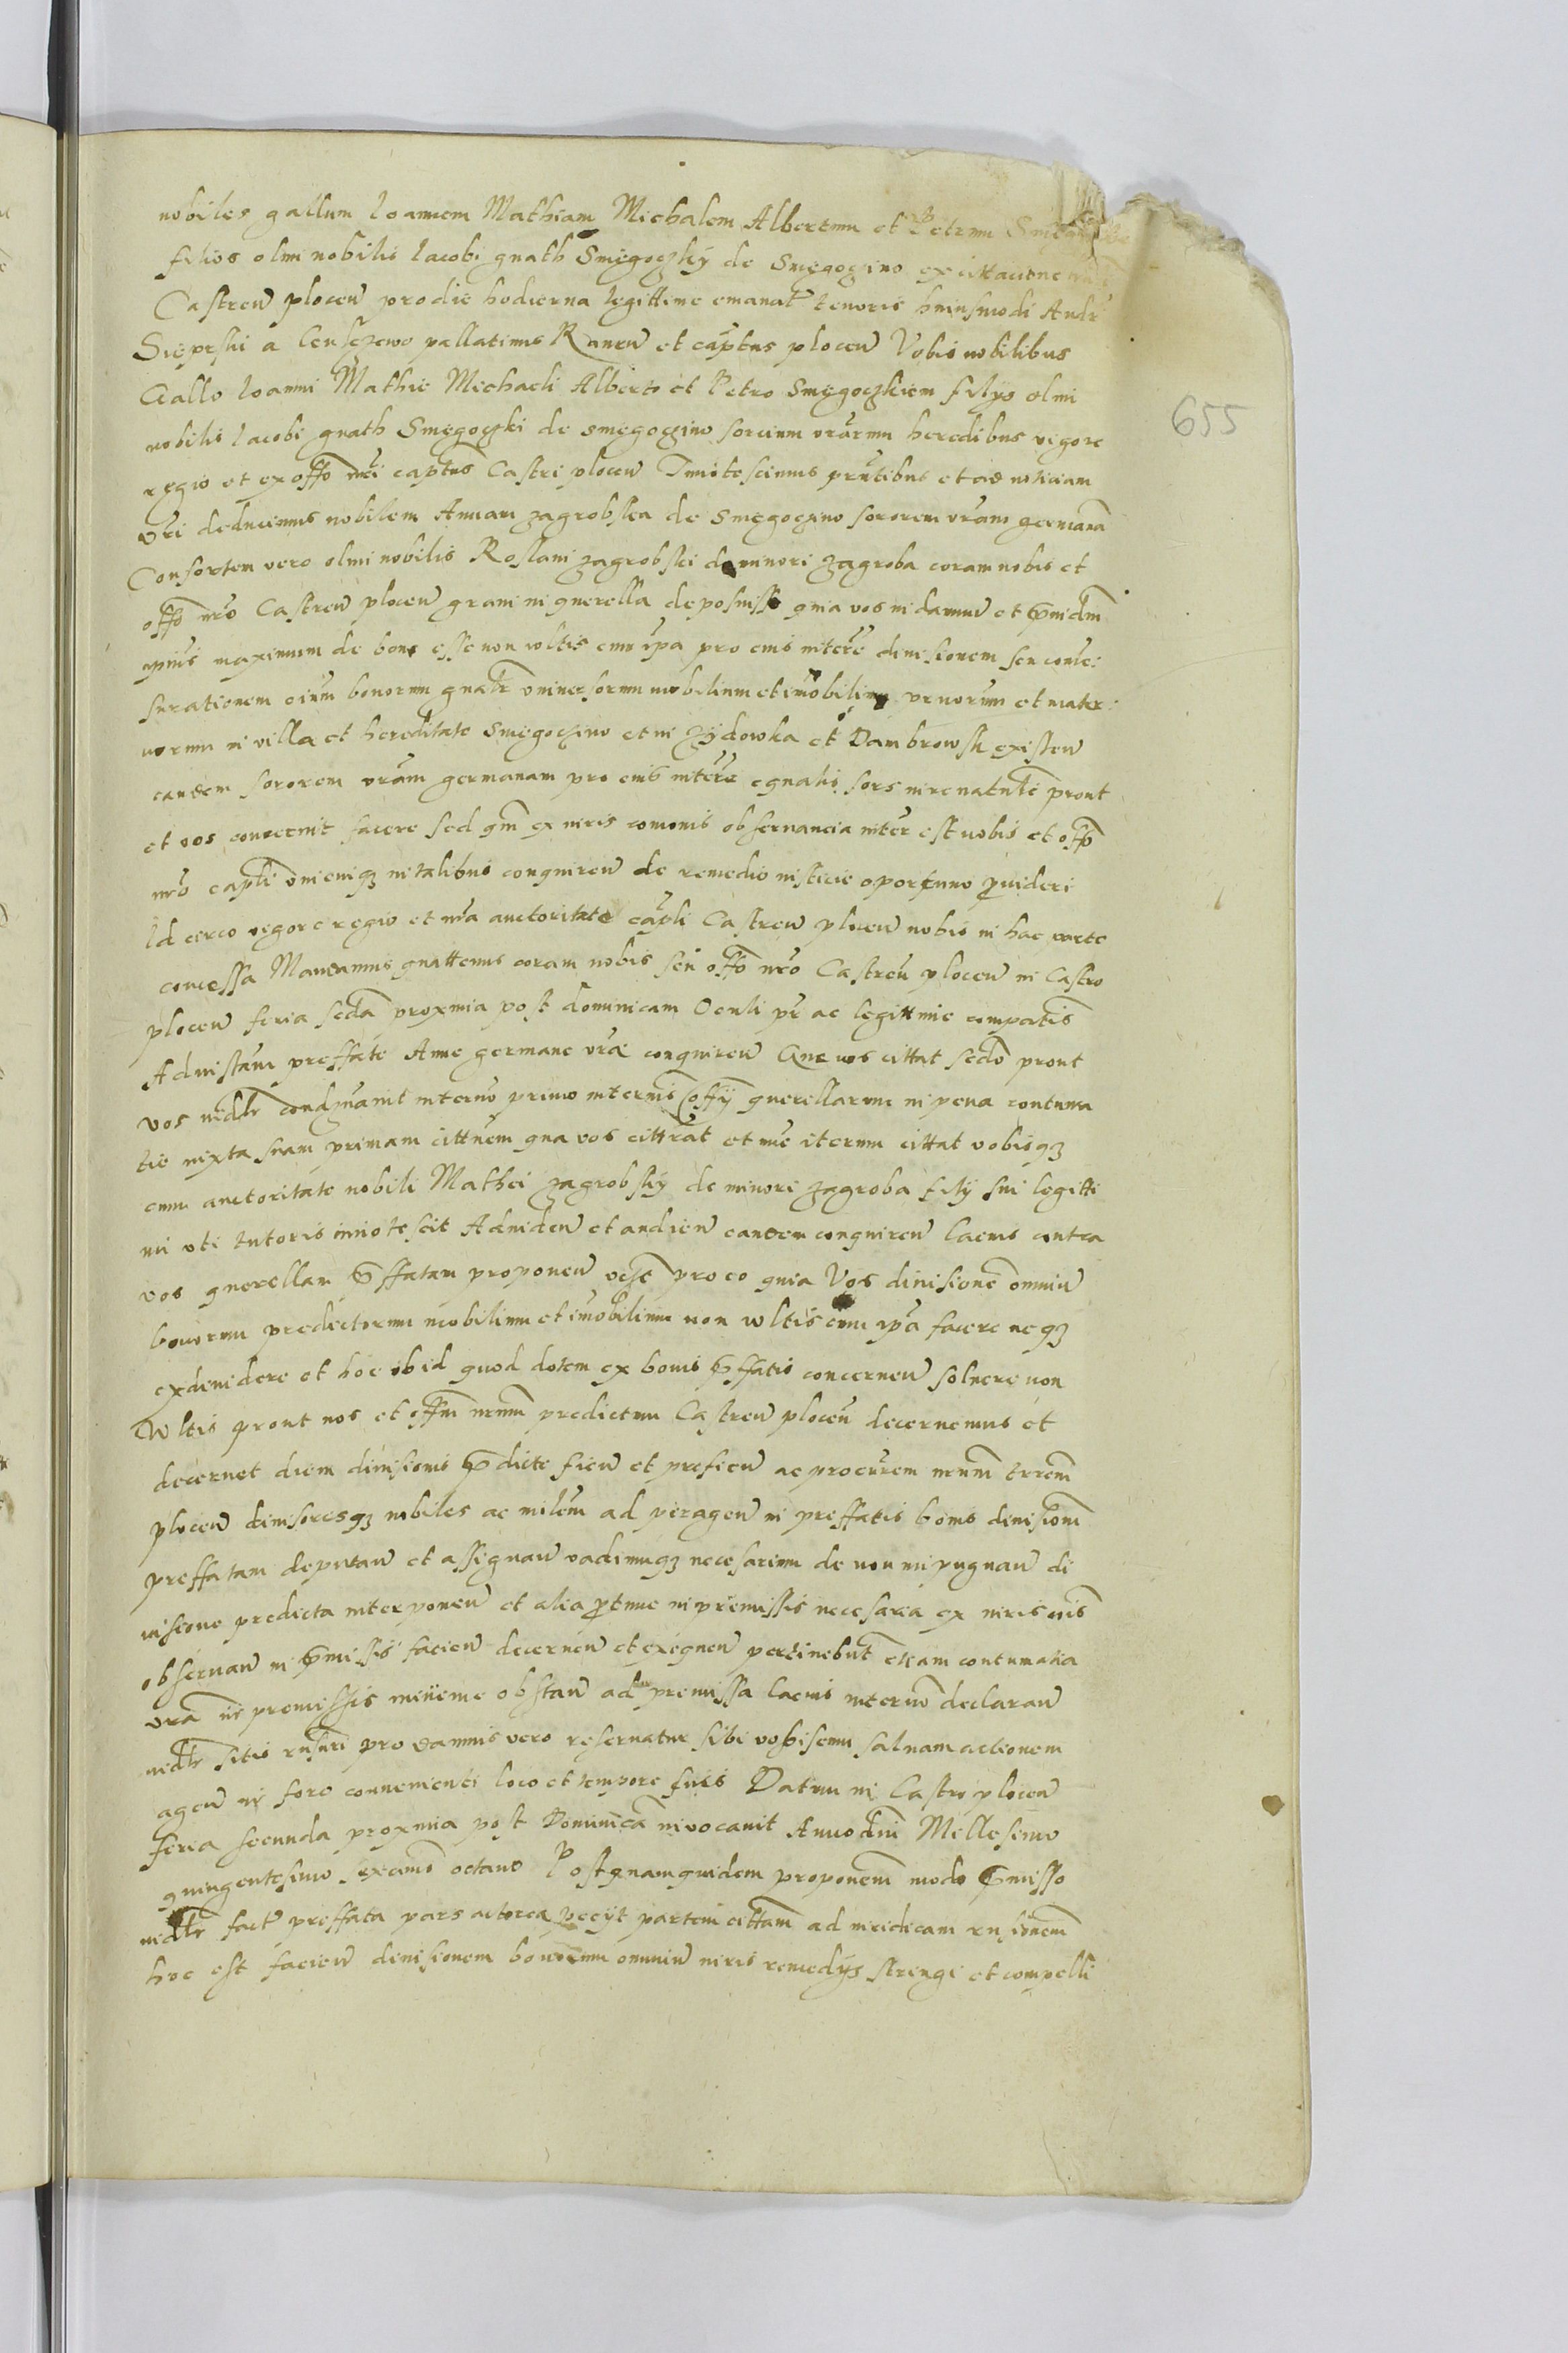 nobiles gallum Ioannem Mathiam Michalem Albertum et Petrum
filios olmi nobilis Iacobi gnath Smęgoczky de Smęgoczino ex cittacione
Castren plocen pro die hodierna legittime emanat tenoris huiusmodi Andr
Sieprski a pallatinus Raven et captus plocen Vobis nobilibus
Gallo Ioanni Mathie Michaeli Alberto et Petro Smęgoczkiem filys olmi
nobilis Iacobi gnath Smęgoczki de smęgoczino sorcium vrarum heredibus vigore
regio et ex offo nri captus Castri plocen Innotescimus pntibus et ad noticiam
vri deducimus nobilem Annam zagrobska de Smęgoczino sororem vram germana
Consortem vero olmi nobilis Roslani zagrobski de minori zagroba coram nobis et
offo nro Castren plocen graui in querella deposuisse quia vos in damnu et
ipius maximum de bono esse non voltis cum ipa pro eius intere diuisionem seu
surationem oium bonorum gnalr vniuersorum mobilium et imobilium et mater
norum in villa et hereditate Smęgoczino et in Zydowka et Dambrowsk existen
eandem sororem vram germanam pro eius intere equalis sors prout
et vos conuenit facere sed qm ex iuris comonis obseruancia inter est nobis et offo
nro capli vnicuiq in talibus conquiren de remedio iusticie oportuno puideri
Id circo vigore regio et nra auctoritate capli Castren plocen nobis in hac parte
concessa Mandamus quattenus coram nobis seu offo nro Castren plocen in Castro
plocen feria secda proxima post dominicam Oculi pr ac legittime compatis
Ad instam preffate Anne germane vrae conquiren Que vos cittat secdo prout
vos uidlr condznauit in termo primo in termis offy querellarum in pena contuma
tie iuxta suam primam cittnem qua vos cittrat et nuc iterum cittat vobisq
cum auctoritate nobili Mathei zagrobsky de minori zagroba fily sui legitti
mi vti tutoris innotescit Ad uiden et audien eandem conquiren lacius contra
vos querellam pffatam proponen pro eo quia Vos diuisione omniu
bonorum predictorum mobilium et imobilium non wltis cum ipa facere neq
exdeuidere et hoc ob id quod dotem ex bonis pffatis concernen soluere non
Wltis prout nos et offm nrum predictum Castren plocen decernemus et
decernet diem diuisionis pdicte fien et prefien ac procurem nrum trrem
plocen diuisoresq nobiles ac milem ad peragen in preffatis bonis diuisionm
preffatam deputan et assignan vadiumq necesarium de non impugnan di
uisione predicta interponen et alia ptnue in premissis necesaria ex iuris ois
obseruan in pmissis facien decernen et exequen pertinebut etiam contumatia
vra in premissis minime obstan ad premissa lacius in termo declaran
uidlr sitis rnsuri pro damnis vero reseruatur sibi vobiscum saluam actionem
agen in foro conuenienti loco et tempore suis Datum in Castro plocen
feria secunda proxima post Dominica inuocauit Anno dni Millesimo
quingentesimo sexamo octauo Postquamquidem proponem modo pmisso
uidlr fact preffata pars actorea pecyt partem cittam ad iuridicam rnsionem
hoc est facien diuisionem bonorum omniu iuris remedys stringi et compelli
655